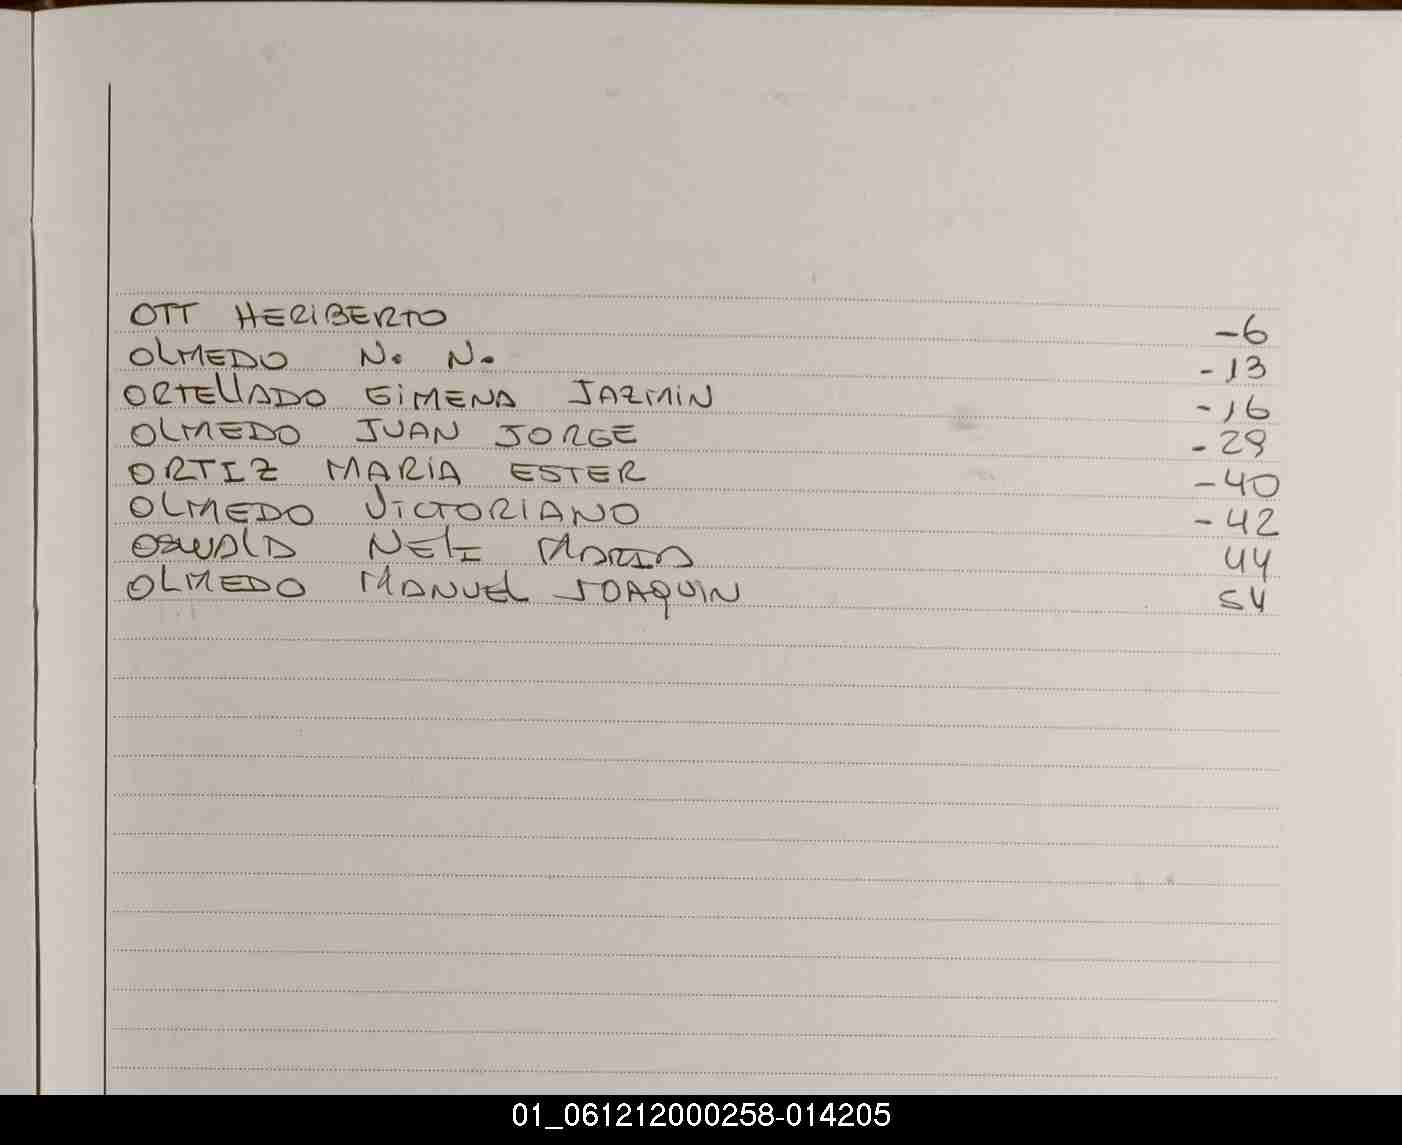 OTT HERIBERTO -6
OLMEDO N. N. -13
ORTELLADO GIMENA JAZMIN -16
OLMEDO JUAN JORGE -29
ORTIZ MARIA ESTER -40
OLMEDO VICTORIANO -42
OSWALD NELI MARIA 44
OLMEDO MANUEL JOAQUIN 54
01_061212000258-014205